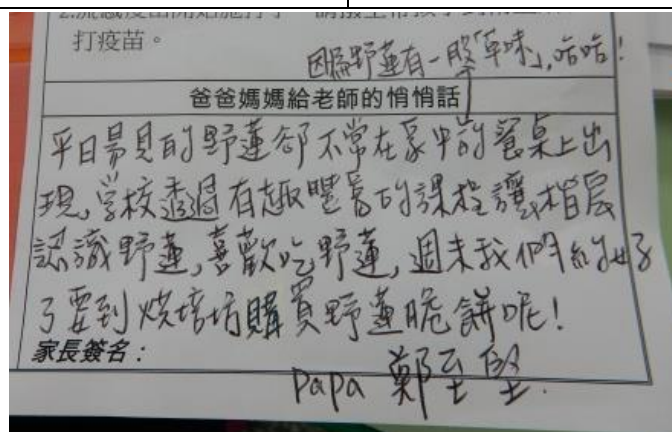 打疫苗。
因為野蓮有一股「草味」，咕咕！
爸爸媽媽給老師的悄悄話
平日易見的野蓮卻不常在家中的餐桌上出
現，学校透過有趣豐富的課程讓楷宸
認識野蓮，喜歡吃野蓮，週末我們約好
了要到烘培坊購買野蓮脆餅呢！
家長簽名：
Papa 鄭至